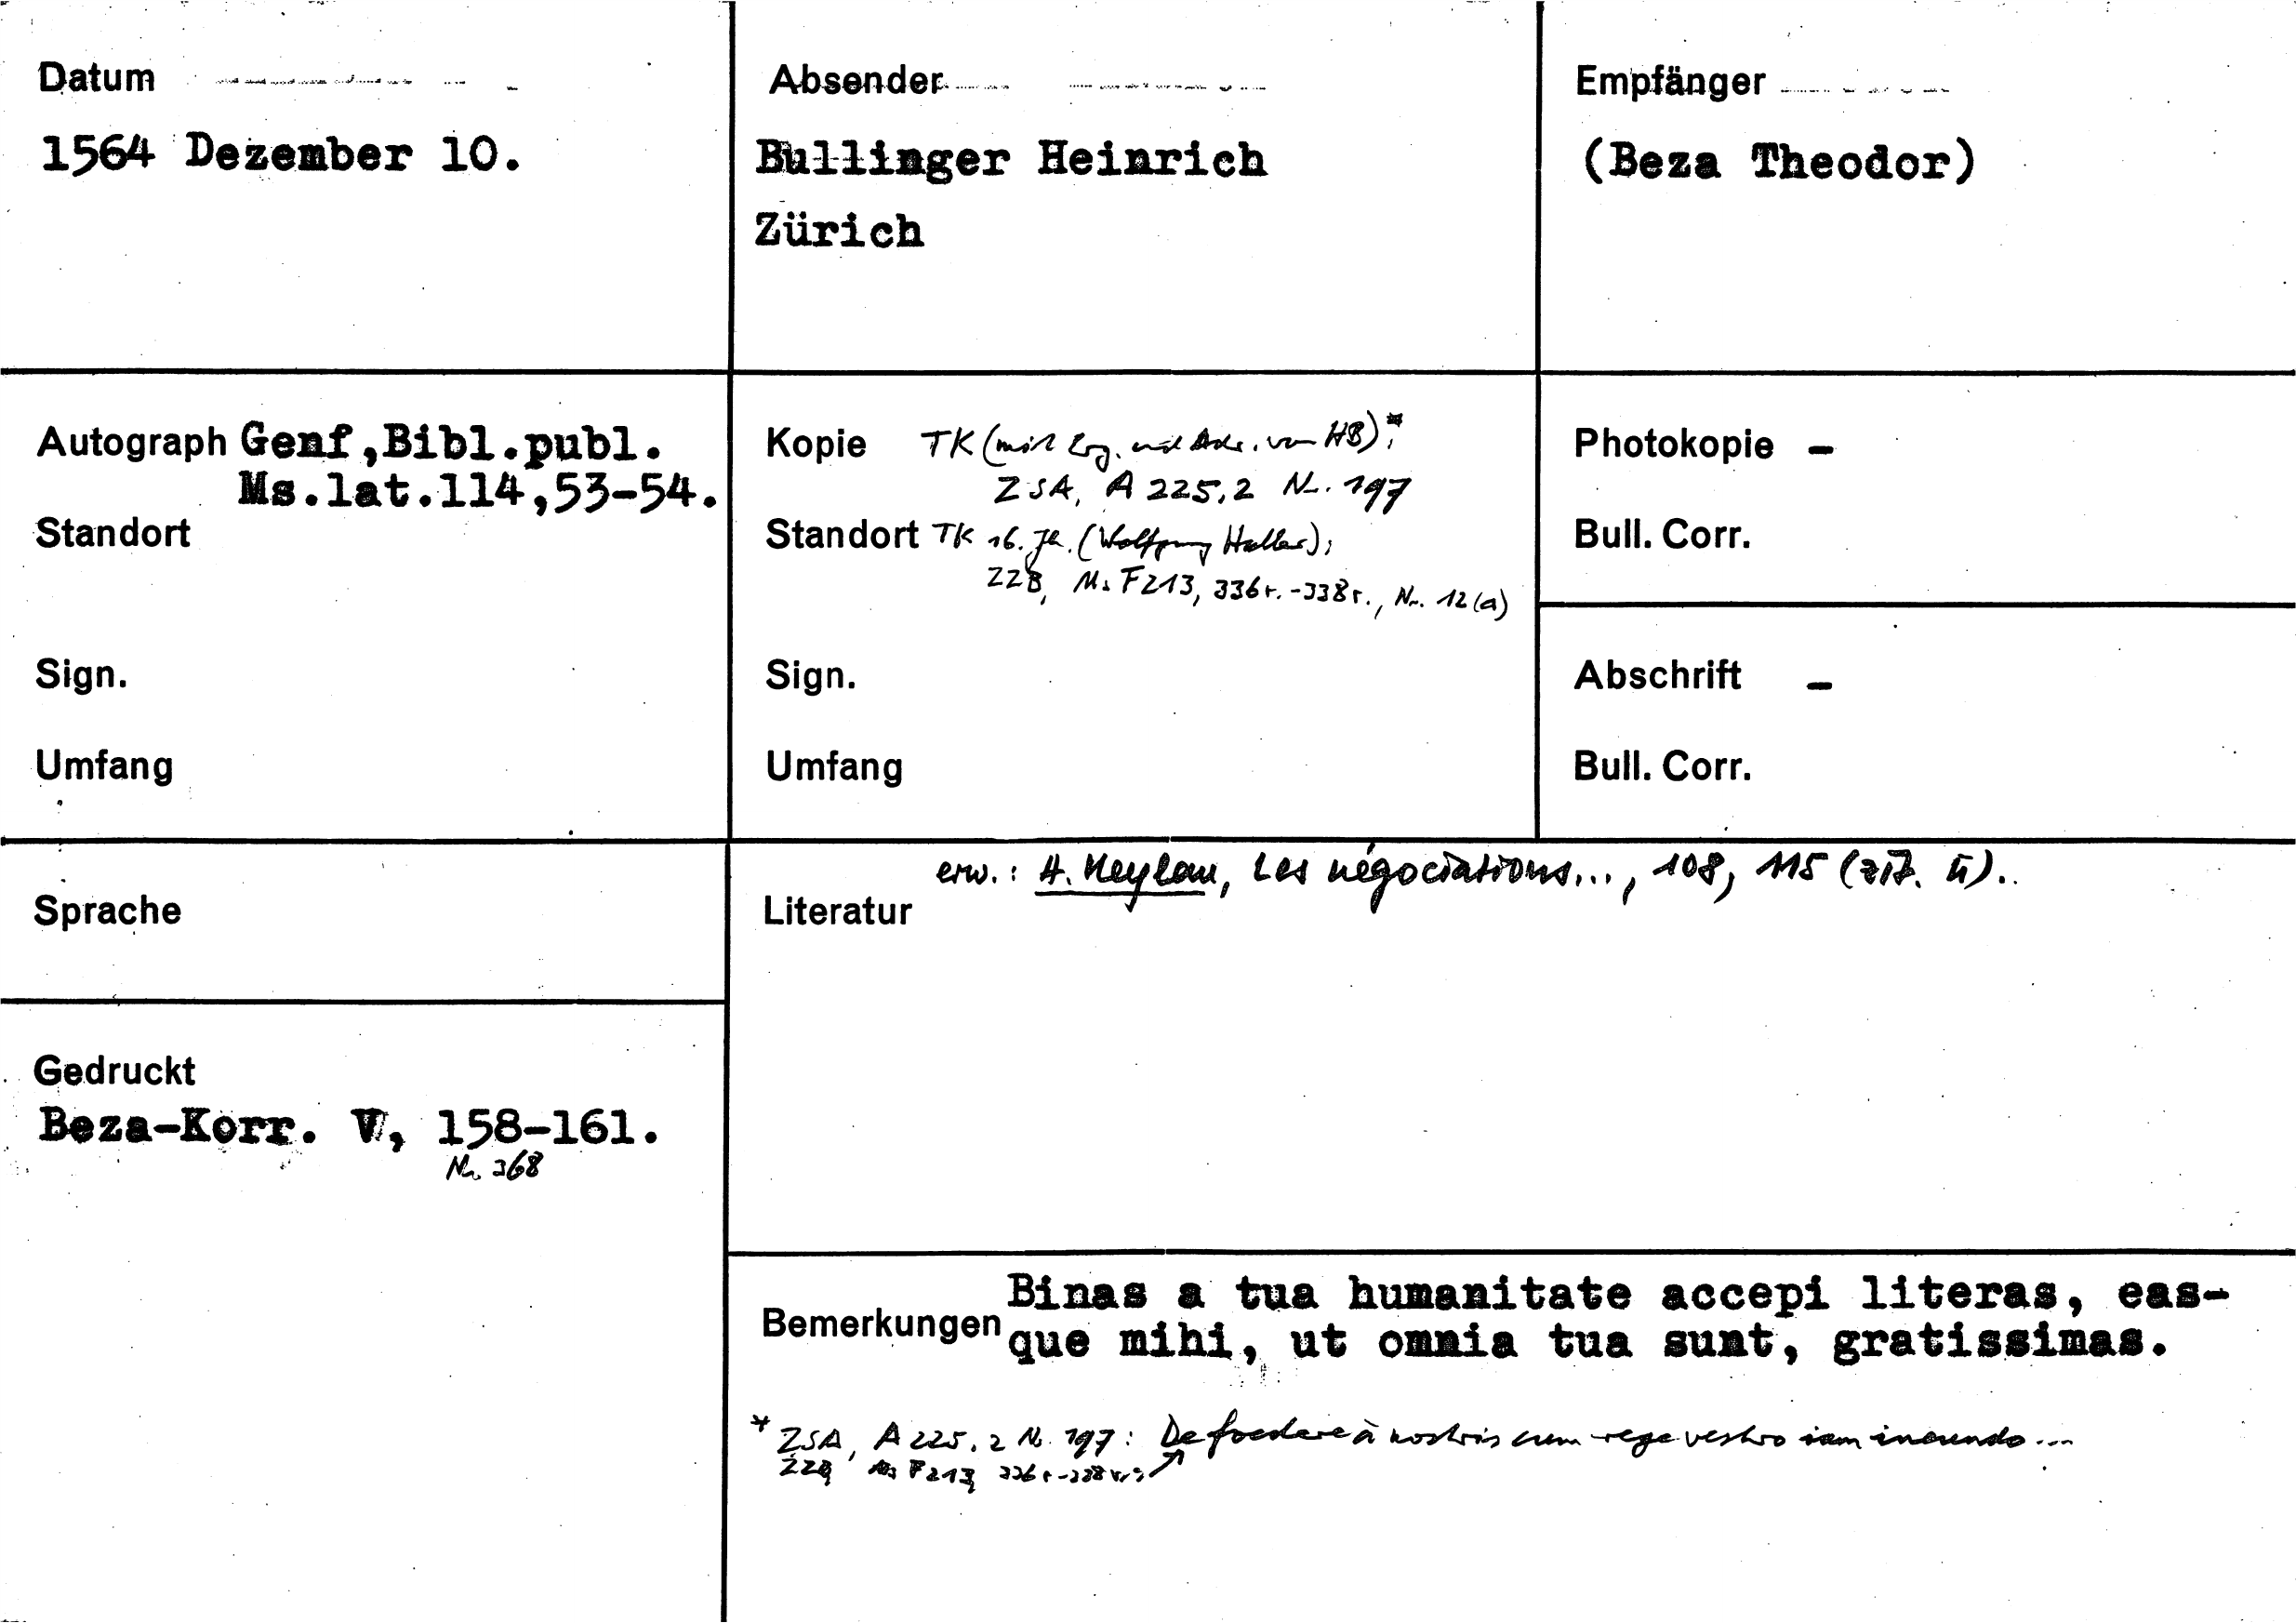 Datum
1564 Dezember 10.
Absender
Bullinger Heinrich
Zürich
Empfänger
(Beza Theodor)
Autograph Genf,Bibl.publ.
Ms.lat.114,53-54.
Standort
Sign.
Umfang
Kopie TK (mit Erg. und Adr. von HB)*;
ZSA, A 225,2 Nr. 197
Standort TK 16. Jh. (Wolfgang Haller);
ZZB, Ms F213, 336r.-338r., Nr. 12(a)
Sign.
Umfang
Photokopie –
Bull. Corr.
Abschrift –
Bull. Corr.
Sprache
erw.: H. Meylan, Les négociations..., 108, 115 (zit. ü)..
Literatur
Gedruckt
Beza-Korr. V, 158-161.
Nr. 368
Bemerkungen
Binas a tua humanitate accepi literas, eas-
que mihi, ut omnia tua sunt, gratissimas.
* ZSA, A 225,2 Nr. 197: De foedere à nostris cum rege vestro iam ineundo...
ZZB, Ms F213, 336r-338r.: ↗